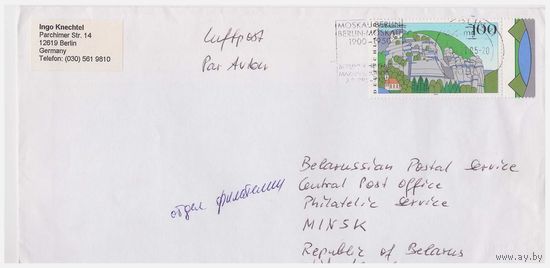 Ingo Knechtel
Parchimer Str. 14
12619 Berlin
Germany
Telefon: (030) 561 9810
Luftpost
Par Avion
MOSKAU-BERLIN
BERLIN-MOSKAU
1900-1950
100
отдел филателии
Belarussian Postal Service
Central Post Office
Philatelic Service
MINSK
Republic of Belarus
www.ay.by